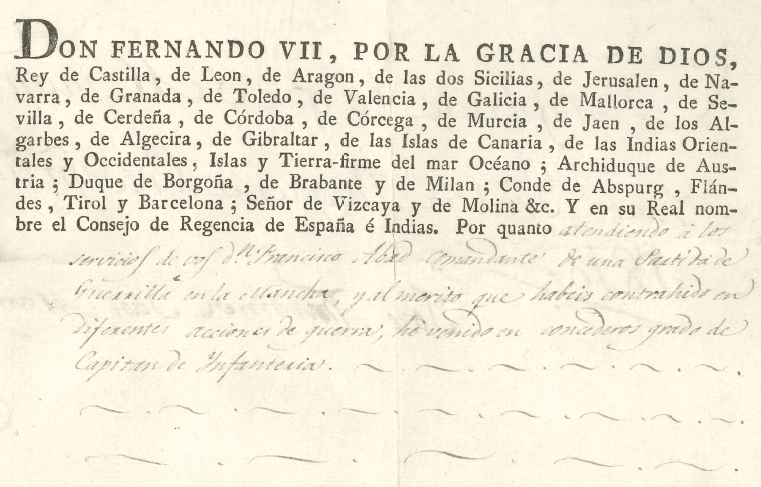 DON FERNANDO VII, POR LA GRACIA DE DIOS,
Rey de Castilla, de Leon, de Aragon, de las dos Sicilias, de Jerusalen, de Na-
varra, de Granada, de Toledo, de Valencia, de Galicia, de Mallorca, de Se-
villa, de Cerdeña, de Córdoba, de Córcega, de Murcia, de Jaen, de los Al-
garbes, de Algecira, de Gibraltar, de las Islas de Canaria, de las Indias Orien-
tales y Occidentales, Islas y Tierra-firme del mar Océano; Archiduque de Aus-
tria; Duque de Borgoña, de Brabante y de Milan; Conde de Abspurg, Flán-
des, Tirol y Barcelona; Señor de Vizcaya y de Molina &c. Y en su Real nom-
bre el Consejo de Regencia de España é Indias. Por quanto atendiendo à los
servicios de vos dn. Francisco Abad Comandante de una Partida de
Guerrilla en la Mancha, y al merito que habeis contrahido en
diferentes acciones de guerra, he venido en concederos grado de
Capitan de Infanteria.